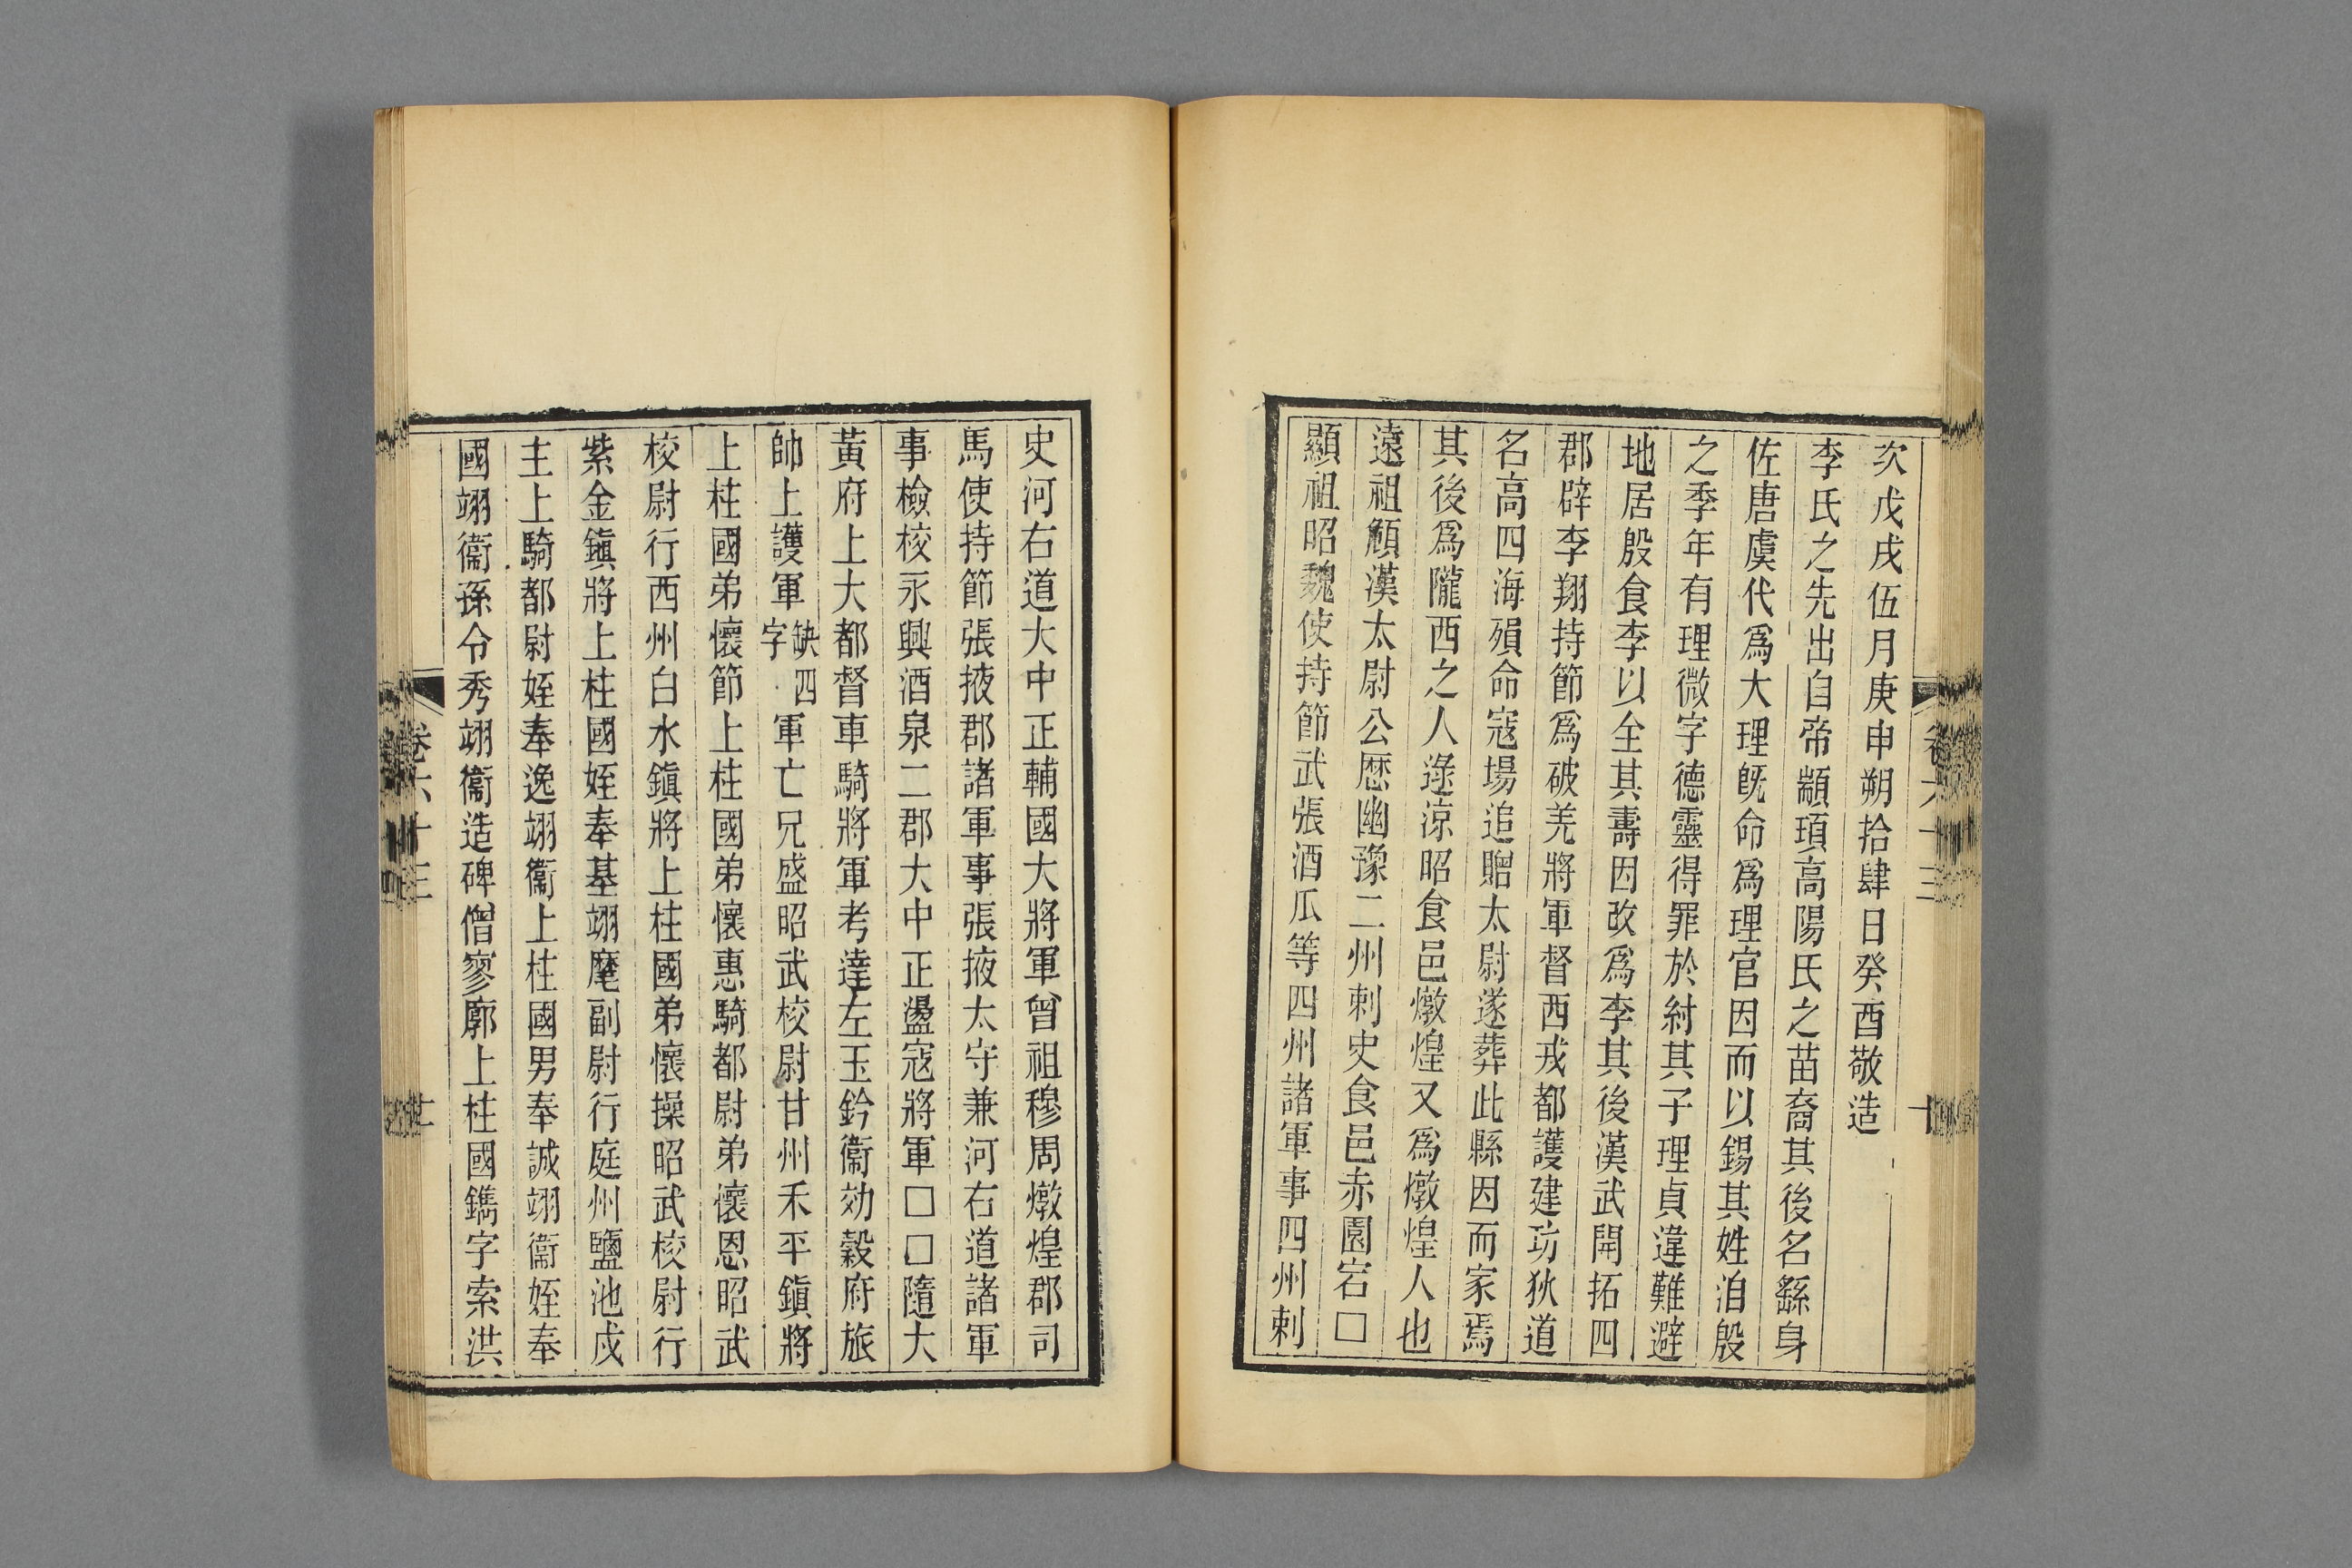 次戊戌伍月庚申朔拾肆日癸酉敬造
李氏之先出自帝顓頊高陽氏之苗裔其後名繇身
佐唐虞代爲大理旣命爲理官因而以錫其姓洎殷
之季年有理微字德靈得罪於紂其子理貞違難避
地居殷食李以全其壽因改爲李其後漢武開拓四
郡辟李翔持節爲破羌將軍督西戎都護建功狄道
名高四海殞命寇場追贈太尉遂葬此縣因而家焉
其後爲隴西之人逯涼昭食邑燉煌又爲燉煌人也
遠祖顧漢太尉公歴幽豫二州刺史食邑赤園宕□
顯祖昭魏使持節武張酒瓜等四州諸軍事四州刺
史河右道大中正輔國大將軍曾祖穆周燉煌郡司
馬使持節張掖郡諸軍事張掖太守兼河右道諸軍
事檢校永興酒泉二郡大中正盪寇將軍□□隨大
黃府上大都督車騎將軍考達左玉鈐衞効穀府旅
帥上護軍缺四字軍亡兄盛昭武校尉甘州禾平鎭將
上柱國弟懷節上柱國弟懷惠騎都尉弟懷恩昭武
校尉行西州白水鎭將上柱國弟懷操昭武校尉行
紫金鎭將上柱國姪奉基翊麾副尉行庭州鹽池戍
主上騎都尉姪奉逸翊衞上柱國男奉誠翊衞姪奉
國翊衞孫令秀翊衞造碑僧寥廓上柱國鐫字索洪
卷六十三